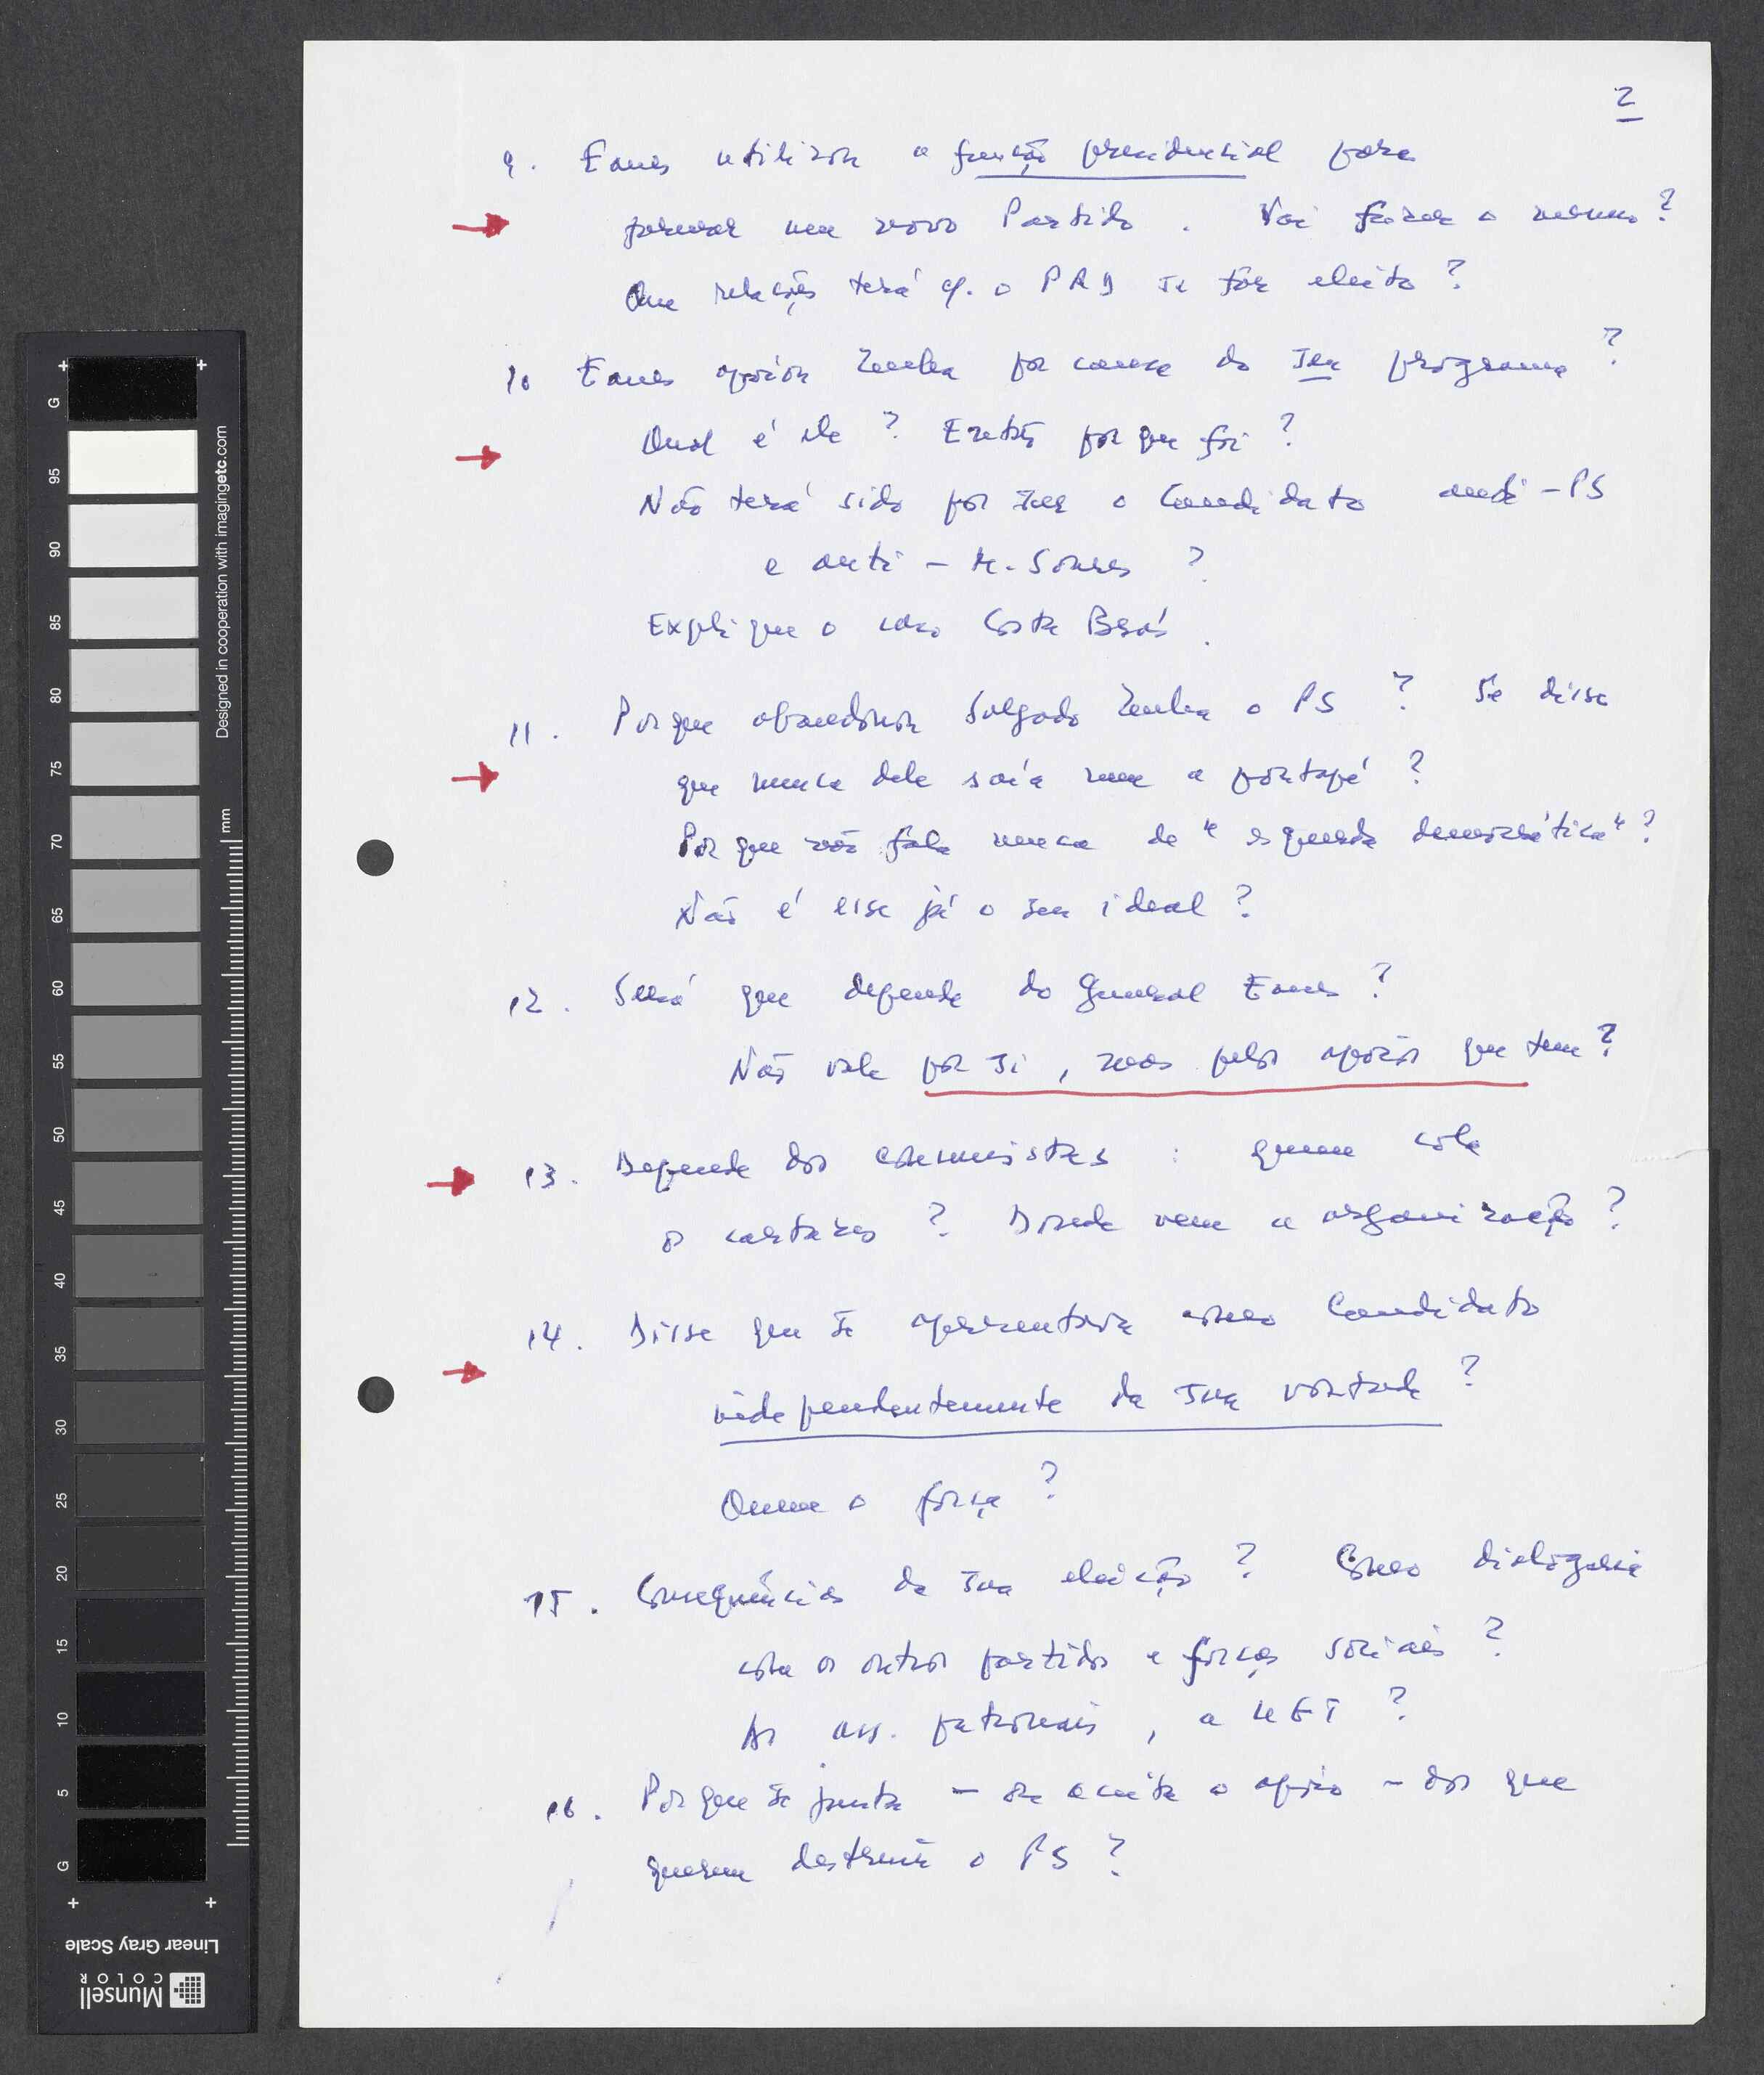 2
9. Eanes utilizou a função presidencial para
formar um novo Partido. Vai fazer o mesmo?
Que relações terá c/. o PRD se fôr eleito?
10 Eanes apoiou Zenha por causa do seu programa?
Qual é ele? Então por que foi?
Não terá sido por ser o Candidato anti-PS
e anti-M. Soares?
Explique o caso Costa Brás.
11. Porque abandonou Salgado Zenha o PS? Se disse
que nunca dele saía nem a pontapé?
Por que não fala nunca de "esquerda democrática"?
Não é esse já o seu ideal?
12. Será que depende do General Eanes?
Não vale por si, mas pelos apoios que tem?
13. Depende dos comunistas: quem cola
os cartazes? Donde vem a organização?
14. Disse que se apresentava como Candidato
independentemente da sua vontade?
Quem o força?
15. Consequências da sua eleição? Como dialogaria
com os outros partidos e forças sociais?
As ass. patronais, a UGT?
16. Porque se junta - ou aceita o apoio - dos que
querem destruir o PS?
G
95
90
85
80
75
70
65
60
55
50
45
40
35
30
25
20
15
10
5
G
mm
Designed in cooperation with imagingetc.com
Linear Gray Scale
Munsell
COLOR